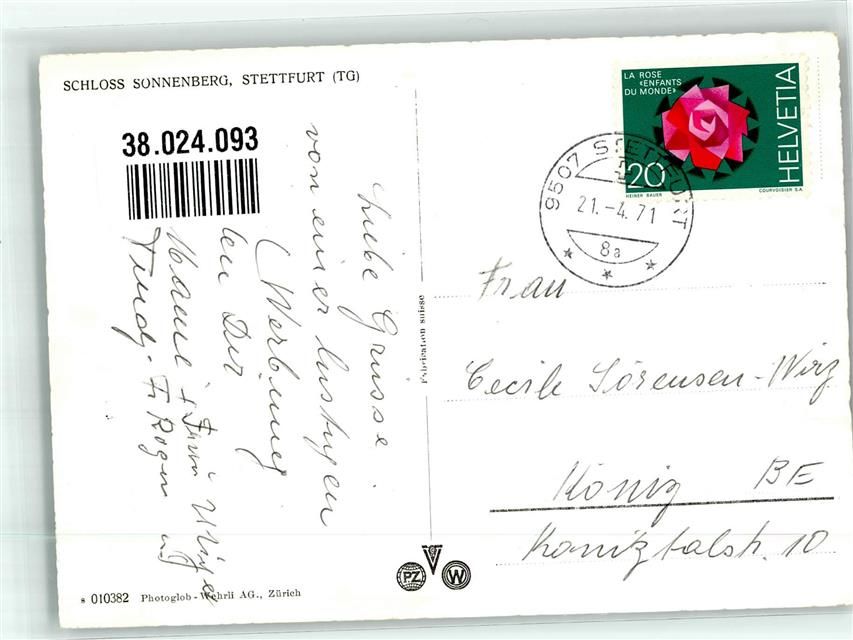 SCHLOSS SONNENBERG, STETTFURT (TG)
38.024.093
Liebe Grüsse
von einer lustigen
(Werbung
len Dir
Trudy
Fabrication suisse
s 010382 Photoglob-Wehrli AG., Zürich
PZ
W
LA ROSE
«ENFANTS
DU MONDE»
HELVETIA
20
HEINER BAUER
COURVOISIER S.A
9507 STETTFURT
21.-4.71
8a
Frau
Cecile Sörensen-Wirz
Köniz BE
Köniztalstr. 10